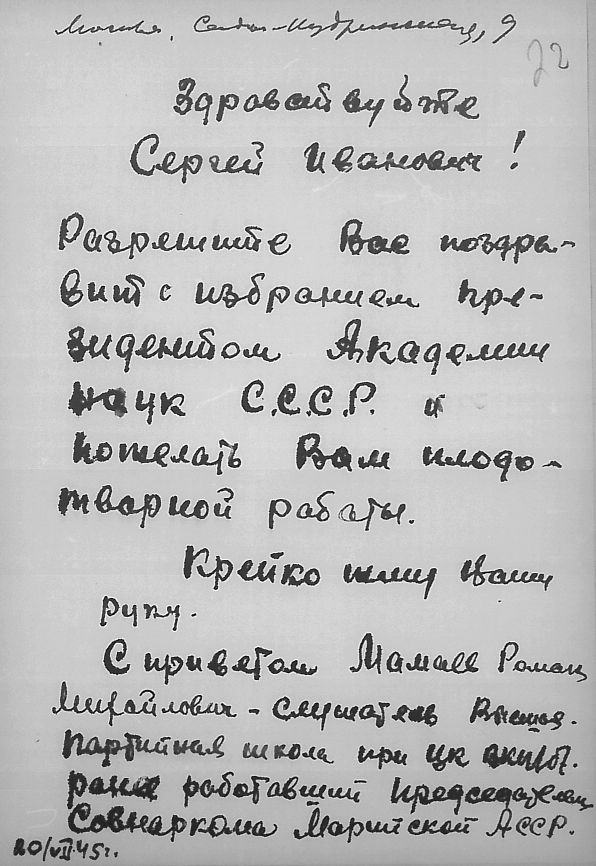 Москва, Садов-Кудринская, 9
22
Здравствуйте
Сергей Иванович!
Разрешите Вас поздра-
вит с избранием пре-
зидентом Академии
наук С.С.С.Р. и
пожелать Вам плодо-
творной работы.
Крепко жму Вашу
руку.
С приветом Мамаев Роман
Михайлович - слушатель Высшая.
Партийная школа при ЦК ВКП/б/.
ранее работавший Председателем
Совнаркома Марийской АССР.
20/VII 45 г.